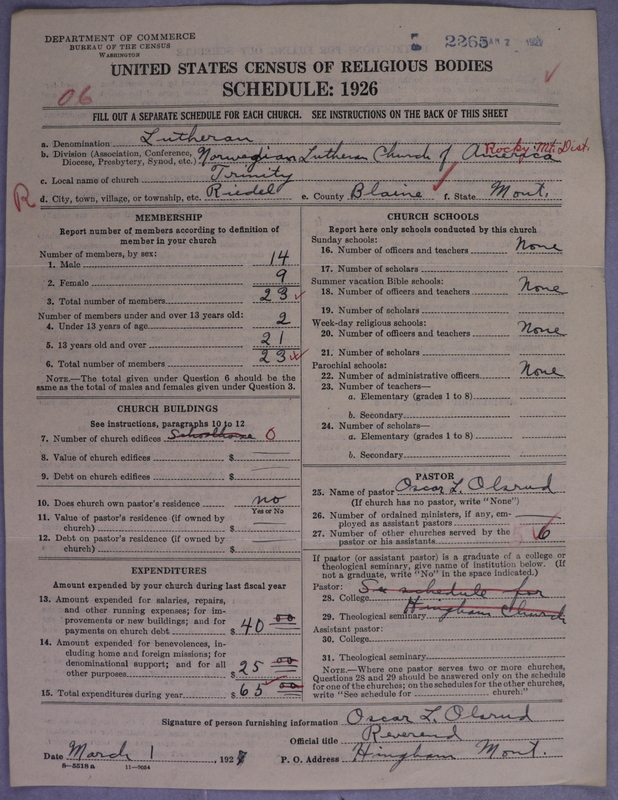 DEPARTMENT OF COMMERCE
BUREAU OF THE CENSUS
WASHINGTON
2265
UNITED STATES CENSUS OF RELIGIOUS BODIES
SCHEDULE: 1926
06
FILL OUT A SEPARATE SCHEDULE FOR EACH CHURCH. SEE INSTRUCTIONS ON THE BACK OF THIS SHEET
a. Denomination Lutheran
b. Division (Association, Conference, Diocese, Presbytery, Synod, etc.) Norwegian Lutheran Church of America Rocky Mt. Dist.
c. Local name of church Trinity
R d. City, town, village, or township, etc. Riedel e. County Blaine f. State Mont.
MEMBERSHIP
Report number of members according to definition of
member in your church
Number of members, by sex:
1. Male 14
2. Female 9
3. Total number of members 23
Number of members under and over 13 years old:
4. Under 13 years of age 2
5. 13 years old and over 21
6. Total number of members 23
NOTE.—The total given under Question 6 should be the
same as the total of males and females given under Question 3.
CHURCH BUILDINGS
See instructions, paragraphs 10 to 12
7. Number of church edifices Schoolhouse 0
8. Value of church edifices $
9. Debt on church edifices $
10. Does church own pastor's residence no
Yes or No
11. Value of pastor's residence (if owned by
church) $
12. Debt on pastor's residence (if owned by
church) $
EXPENDITURES
Amount expended by your church during last fiscal year
13. Amount expended for salaries, repairs,
and other running expenses; for im-
provements or new buildings; and for
payments on church debt $ 40 00
14. Amount expended for benevolences, in-
cluding home and foreign missions; for
denominational support; and for all
other purposes $ 25 00
15. Total expenditures during year $ 65 00
CHURCH SCHOOLS
Report here only schools conducted by this church
Sunday schools:
16. Number of officers and teachers None
17. Number of scholars
Summer vacation Bible schools:
18. Number of officers and teachers None
19. Number of scholars
Week-day religious schools:
20. Number of officers and teachers None
21. Number of scholars
Parochial schools:
22. Number of administrative officers None
23. Number of teachers—
a. Elementary (grades 1 to 8)
b. Secondary
24. Number of scholars—
a. Elementary (grades 1 to 8)
b. Secondary
PASTOR
25. Name of pastor Oscar L. Olsrud
(If church has no pastor, write "None")
26. Number of ordained ministers, if any, em-
ployed as assistant pastors
27. Number of other churches served by the
pastor or his assistants 6
If pastor (or assistant pastor) is a graduate of a college or
theological seminary, give name of institution below. (If
not a graduate, write "No" in the space indicated.)
Pastor:
28. College See schedule for
29. Theological seminary Hingham Church
Assistant pastor:
30. College
31. Theological seminary
NOTE.—Where one pastor serves two or more churches,
Questions 28 and 29 should be answered only on the schedule
for one of the churches; on the schedules for the other churches,
write "See schedule for church."
Signature of person furnishing information Oscar L. Olsrud
Official title Reverend
Date March 1, 1927 P. O. Address Hingham Mont.
8—5518a 11—9054